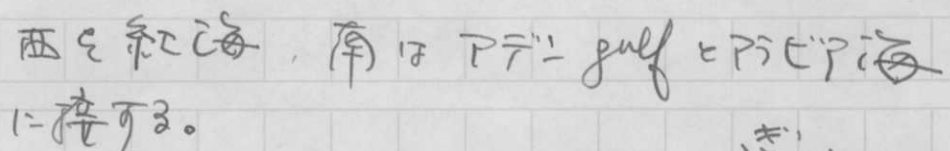 西を紅海、南はアデンgulfとアラビア海
に接する。